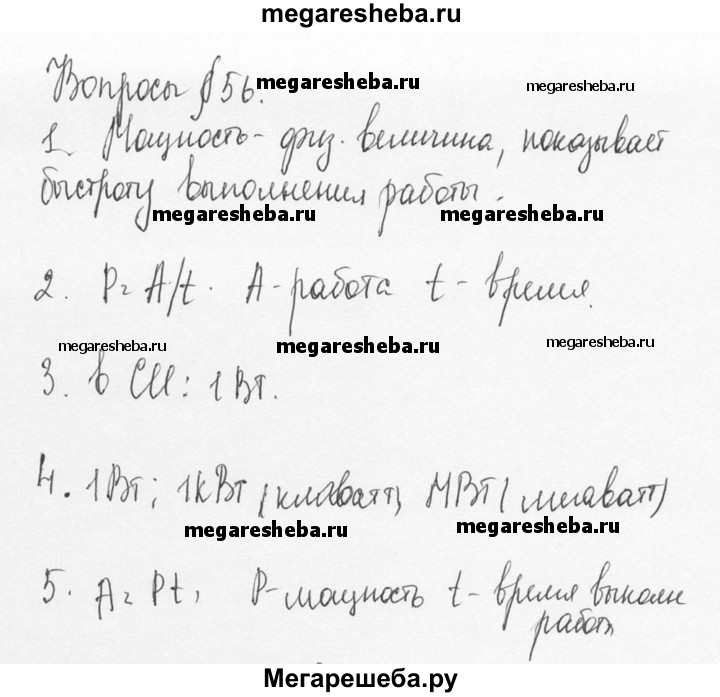 megaresheba.ru
Вопросы §56. megaresheba.ru megaresheba.ru
1 Мощность - физ. величина, показывает
быстроту выполнения работы.
megaresheba.ru megaresheba.ru
2. P = A/t. A - работа t - время.
megaresheba.ru megaresheba.ru megaresheba.ru
3. в СИ: 1 Вт.
4. 1Вт; 1кВт (киловатт), МВт (мегаватт)
megaresheba.ru megaresheba.ru
5. A = Pt, P - мощность t - время выполн
работы
Мегарешеба.ру